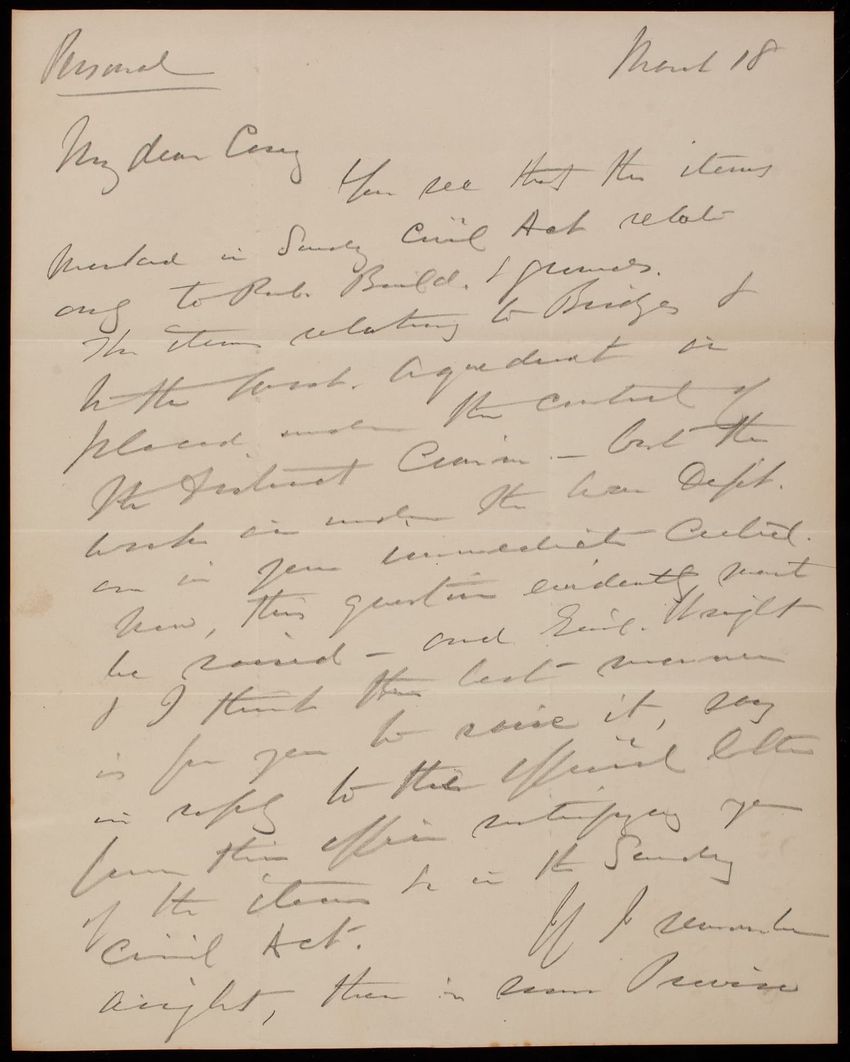 Personal
March 18
My dear Casey
You see that the items
inserted in Sundry Civil Act relate
only to Pub. Build. & grounds.
The items relating to Bridges &
to the Wash. Aqueduct are
placed under the control of
the District Comrs. — but the
works are under the War Dept.
are in your immediate Control.
Now, this question evidently must
be raised — and Genl. Wright
& I think the best manner
is for you to raise it, say
in reply to the official letter
from this office notifying you
of the items &c in the Sundry
Civil Act. If I remember
aright, there is some Proviso